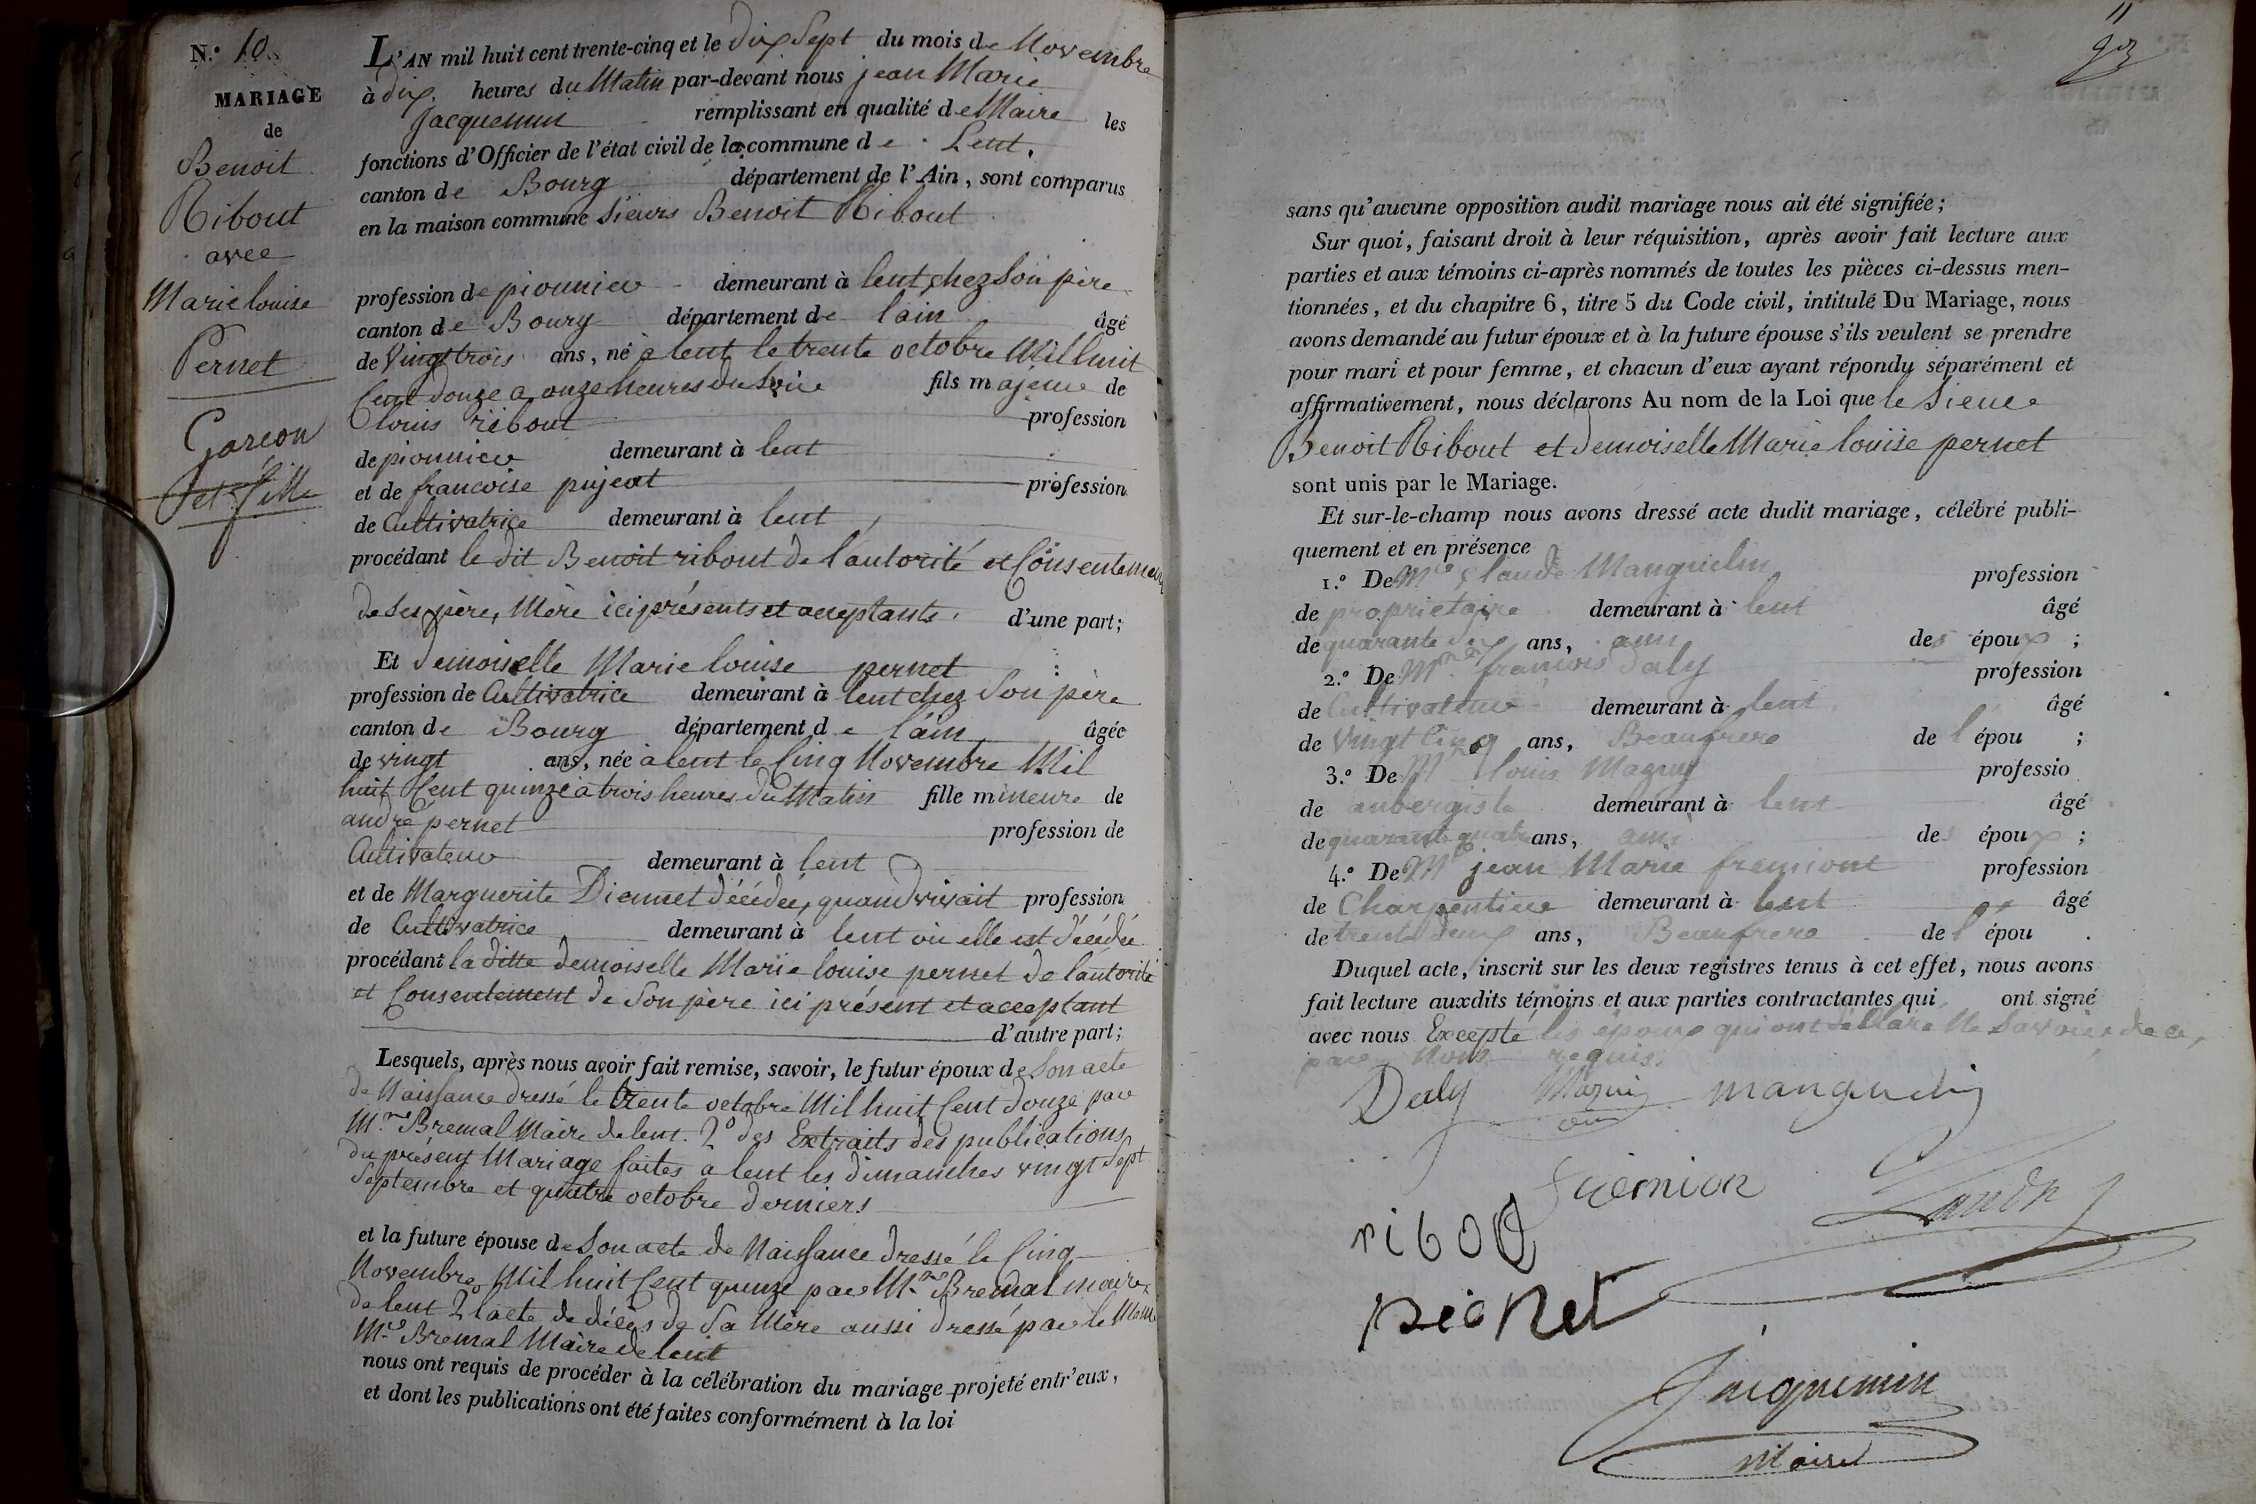 N.º 10
MARIAGE
de
Benoit
Ribout
avec
Marie louise
Pernet
Garcon
et fille
L'AN mil huit cent trente-cinq et le dix Sept du mois de Novembre
à dix heures du Matin par-devant nous jean Marie
Jacquemin remplissant en qualité de Maire les
fonctions d'Officier de l'état civil de la commune de Lent,
canton de Bourg département de l'Ain, sont comparus
en la maison commune Sieurs Benoit Ribout
profession de pionnier demeurant à lent chez Son père
canton de Bourg département de lain âgé
de Vingt trois ans, né à lent le trente octobre Mil huit
Cent douze a onze heures du Soir fils majeur de
louis ribout profession
de pionnier demeurant à lent
et de francoise pujeat profession
de Cultivatrice demeurant à lent
procédant le dit Benoit ribout de l'autorité et Consentement
de Ses père, Mère ici présents et acceptants, d'une part;
Et demoiselle Marie louise pernet
profession de Cultivatrice demeurant à lent chez Son père
canton de Bourg département de l'ain âgée
de vingt ans, née à lent le Cinq Novembre Mil
huit Cent quinze à trois heures du Matin fille mineure de
andré pernet profession de
Cultivateur demeurant à lent
et de Marguerite Diennet décédée, quand vivait profession
de Cultivatrice demeurant à lent où elle est décédée
procédant la ditte demoiselle Marie louise pernet de l'autorité
et Consentement de Son père ici présent et acceptant
d'autre part;
Lesquels, après nous avoir fait remise, savoir, le futur époux de Son acte
de Naissance dressé le trente octobre Mil huit Cent douze par
Mr. Bremal Maire de lent. 2º des Extraits des publications
du présent Mariage faites a lent les dimanches vingt Sept
Septembre et quatre octobre derniers
et la future épouse de Son acte de Naissance dressé le Cinq
Novembre Mil huit Cent quinze par Mr. Bremal maire
de lent 2º l'acte de décès de Sa Mère aussi dressé par le Meme
Mr. Bremal Maire de lent
nous ont requis de procéder à la célébration du mariage projeté entr'eux,
et dont les publications ont été faites conformément à la loi
11
sans qu'aucune opposition audit mariage nous ait été signifiée;
Sur quoi, faisant droit à leur réquisition, après avoir fait lecture aux
parties et aux témoins ci-après nommés de toutes les pièces ci-dessus men-
tionnées, et du chapitre 6, titre 5 du Code civil, intitulé Du Mariage, nous
avons demandé au futur époux et à la future épouse s'ils veulent se prendre
pour mari et pour femme, et chacun d'eux ayant répondu séparément et
affirmativement, nous déclarons Au nom de la Loi que le Sieur
Benoit Ribout et demoiselle Marie louise pernet
sont unis par le Mariage.
Et sur-le-champ nous avons dressé acte dudit mariage, célébré publi-
quement et en présence
1.º De Mr Claude Manguelin profession
de proprietaire demeurant à lent âgé
de quarante deux ans, ami des époux ;
2.º De Mr. françois Daly profession
de Cultivateur demeurant à lent âgé
de Vingt Cinq ans, Beaufrere de l'épou ;
3.º De Mr louis Magny professio
de aubergiste demeurant à lent âgé
de quarante quatre ans, ami des époux ;
4.º De Mr jean Marie fremiont profession
de Charpentier demeurant à lent âgé
de trente deux ans, Beaufrere de l'épou .
Duquel acte, inscrit sur les deux registres tenus à cet effet, nous avons
fait lecture auxdits témoins et aux parties contractantes qui ont signé
avec nous Excepté les époux qui ont déclaré Ne Savoir de ce,
par Nous requis.
Daly Magni manguelin
ribou
pernet
Jacquemin
Maire